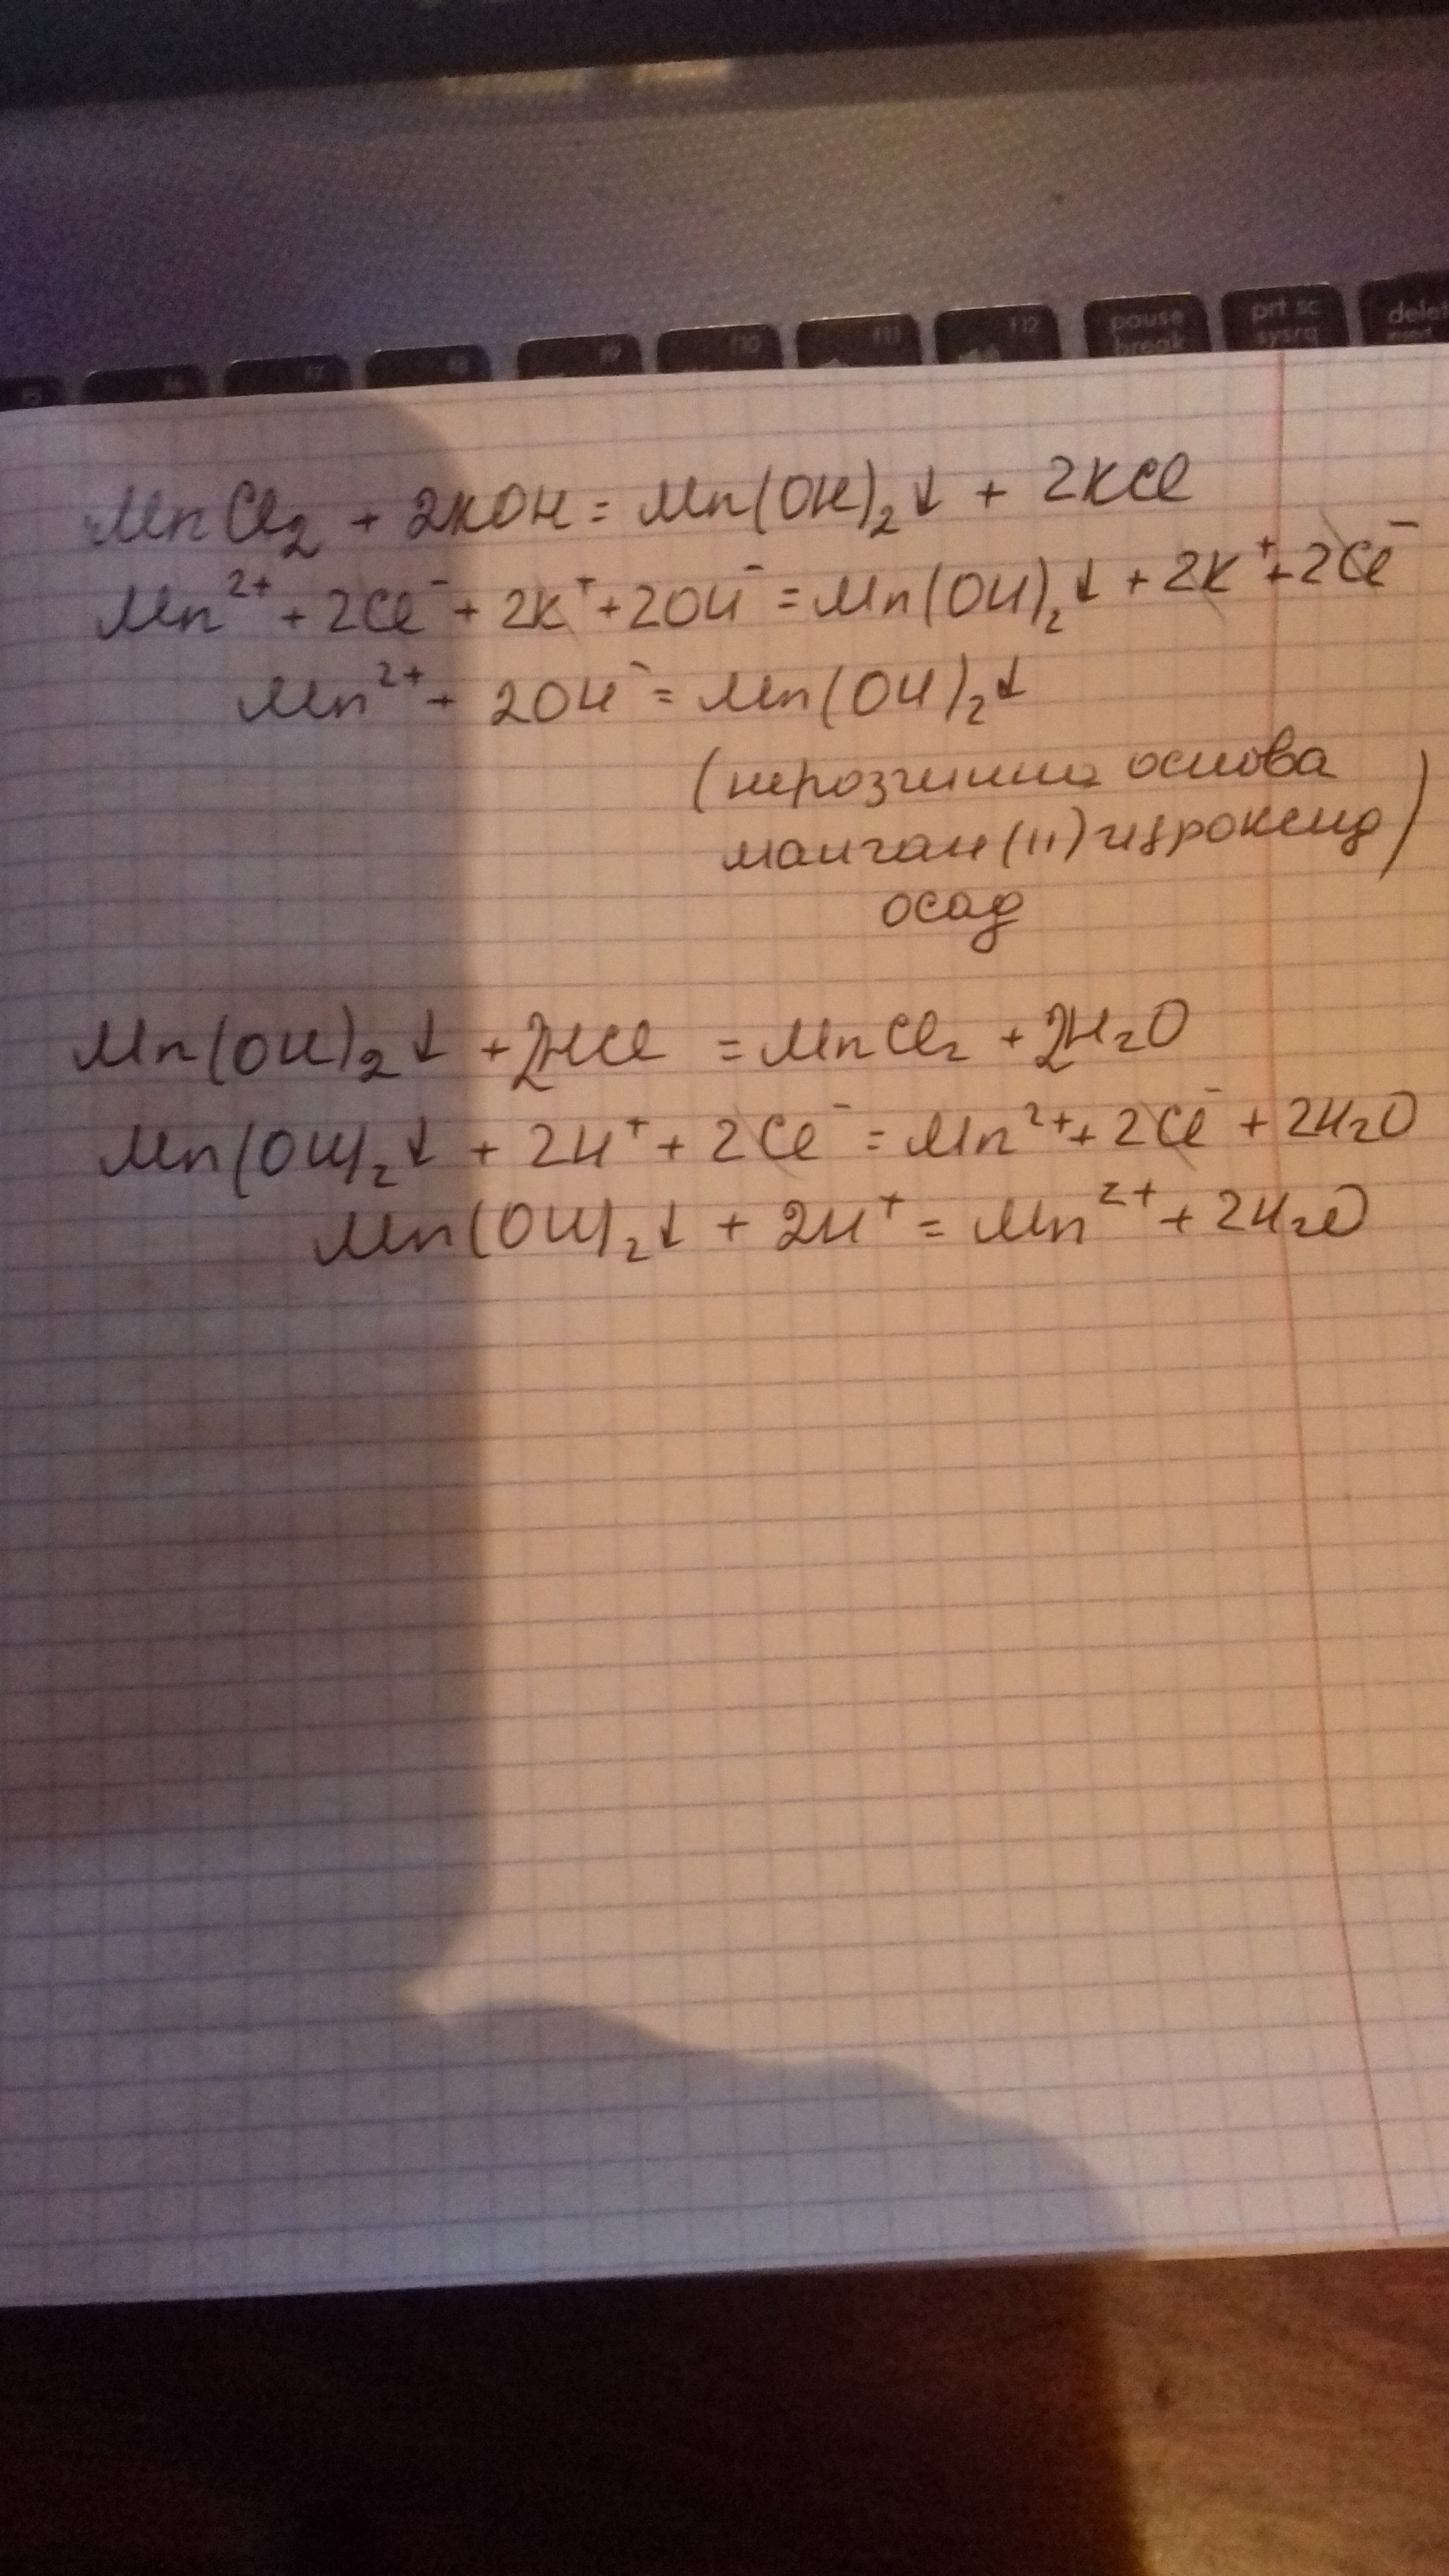 f6
f7
f8
f9
f10
f11
f12
pause
break
prt sc
sysrq
MnCl₂ + 2KOH = Mn(OH)₂↓ + 2KCl
Mn²⁺ + 2Cl⁻ + 2K⁺ + 2OH⁻ = Mn(OH)₂↓ + 2K⁺ + 2Cl⁻
Mn²⁺ + 2OH⁻ = Mn(OH)₂↓
(нерозчинна основа
манган (II) гідроксид)
осад
Mn(OH)₂↓ + 2HCl = MnCl₂ + 2H₂O
Mn(OH)₂↓ + 2H⁺ + 2Cl⁻ = Mn²⁺ + 2Cl⁻ + 2H₂O
Mn(OH)₂↓ + 2H⁺ = Mn²⁺ + 2H₂O